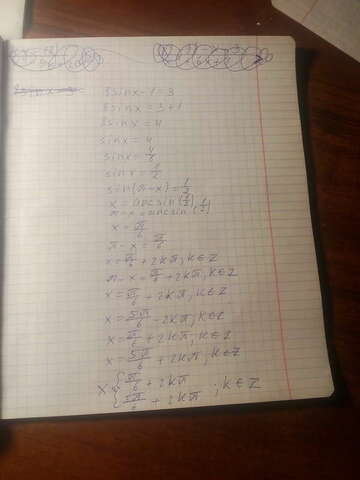 8sinx-1=3
8sinx=3+1
8sinx=4
sinx=4
sinx=4/8
sinx=1/2
sin(π-x)=1/2
x=arcsin(1/2)
π-x=arcsin(1/2)
x=π/6
π-x=π/6
x=π/6+2kπ, k∈Z
π-x=π/6+2kπ, k∈Z
x=π/6+2kπ, k∈Z
x=5π/6-2kπ, k∈Z
x=π/6+2kπ, k∈Z
x=5π/6+2kπ, k∈Z
x { π/6+2kπ
5π/6+2kπ ; k∈Z